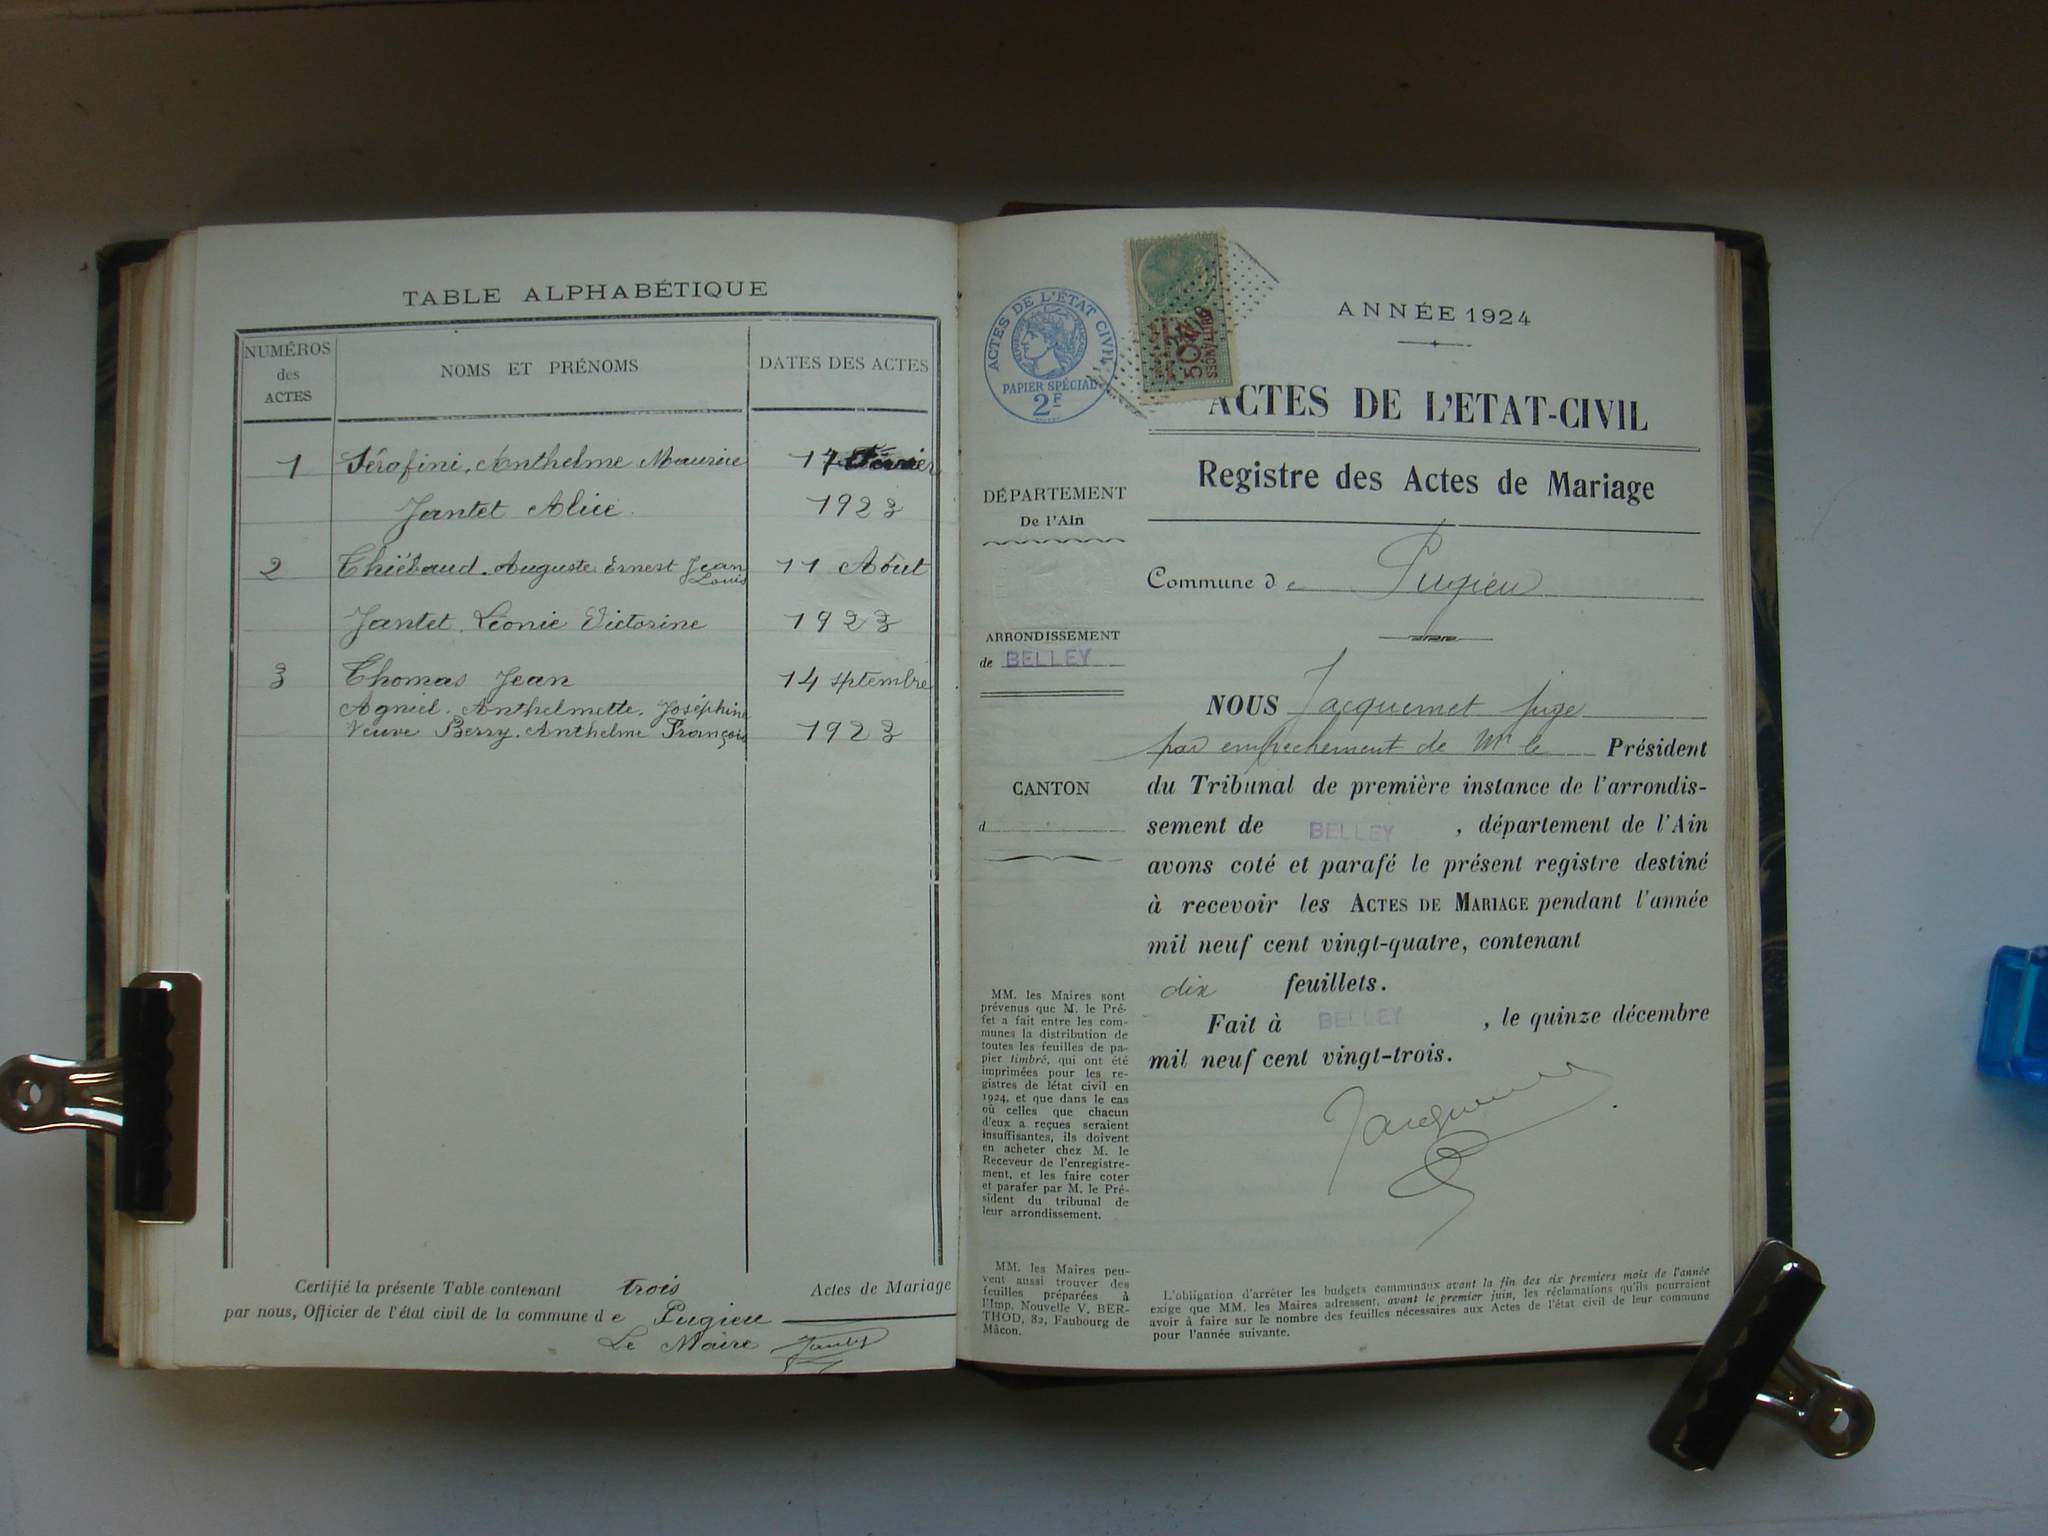 TABLE ALPHABÉTIQUE
NUMÉROS
des
ACTES
NOMS ET PRÉNOMS
DATES DES ACTES
1 Sérafini, Anthelme Maurice 17 Février
Jantet Alice 1923
2 Thiébaud. Auguste Ernest Jean Louis 11 Aôut
Jantet Léonie Victorine 1923
3 Thomas Jean 14 sptembre
Agniel. Anthelmette. Joséphine
Veuve Berry. Anthelme François 1923
Certifié la présente Table contenant trois Actes de Mariage
par nous, Officier de l'état civil de la commune de Pugieu
Le Maire
ACTES DE L'ÉTAT CIVIL
PAPIER SPÉCIAL
2F
ANNÉE 1924
ACTES DE L'ETAT-CIVIL
Registre des Actes de Mariage
DÉPARTEMENT
De l'Ain
Commune de Pugieu
ARRONDISSEMENT
de BELLEY
CANTON
d
NOUS Jacquemet juge
par empechement de Mr le Président
du Tribunal de première instance de l'arrondis-
sement de BELLEY, département de l'Ain
avons coté et parafé le présent registre destiné
à recevoir les ACTES DE MARIAGE pendant l'année
mil neuf cent vingt-quatre, contenant
dix feuillets.
Fait à BELLEY, le quinze décembre
mil neuf cent vingt-trois.
Jacquemet
MM. les Maires sont
prévenus que M. le Pré-
fet a fait entre les com-
munes la distribution de
toutes les feuilles de pa-
pier timbré, qui ont été
imprimées pour les re-
gistres de létat civil en
1924, et que dans le cas
où celles que chacun
d'eux a reçues seraient
insuffisantes, ils doivent
en acheter chez M. le
Receveur de l'enregistre-
ment, et les faire coter
et parafer par M. le Pré-
sident du tribunal de
leur arrondissement.
MM. les Maires peu-
vent aussi trouver des
feuilles préparées à
l'Imp. Nouvelle V. BER-
THOD, 82, Faubourg de
Mâcon.
L'obligation d'arrêter les budgets communaux avant la fin des six premiers mois de l'année
exige que MM. les Maires adressent, avant le premier juin, les réclamations qu'ils pourraient
avoir à faire sur le nombre des feuilles nécessaires aux Actes de l'état civil de leur commune
pour l'année suivante.